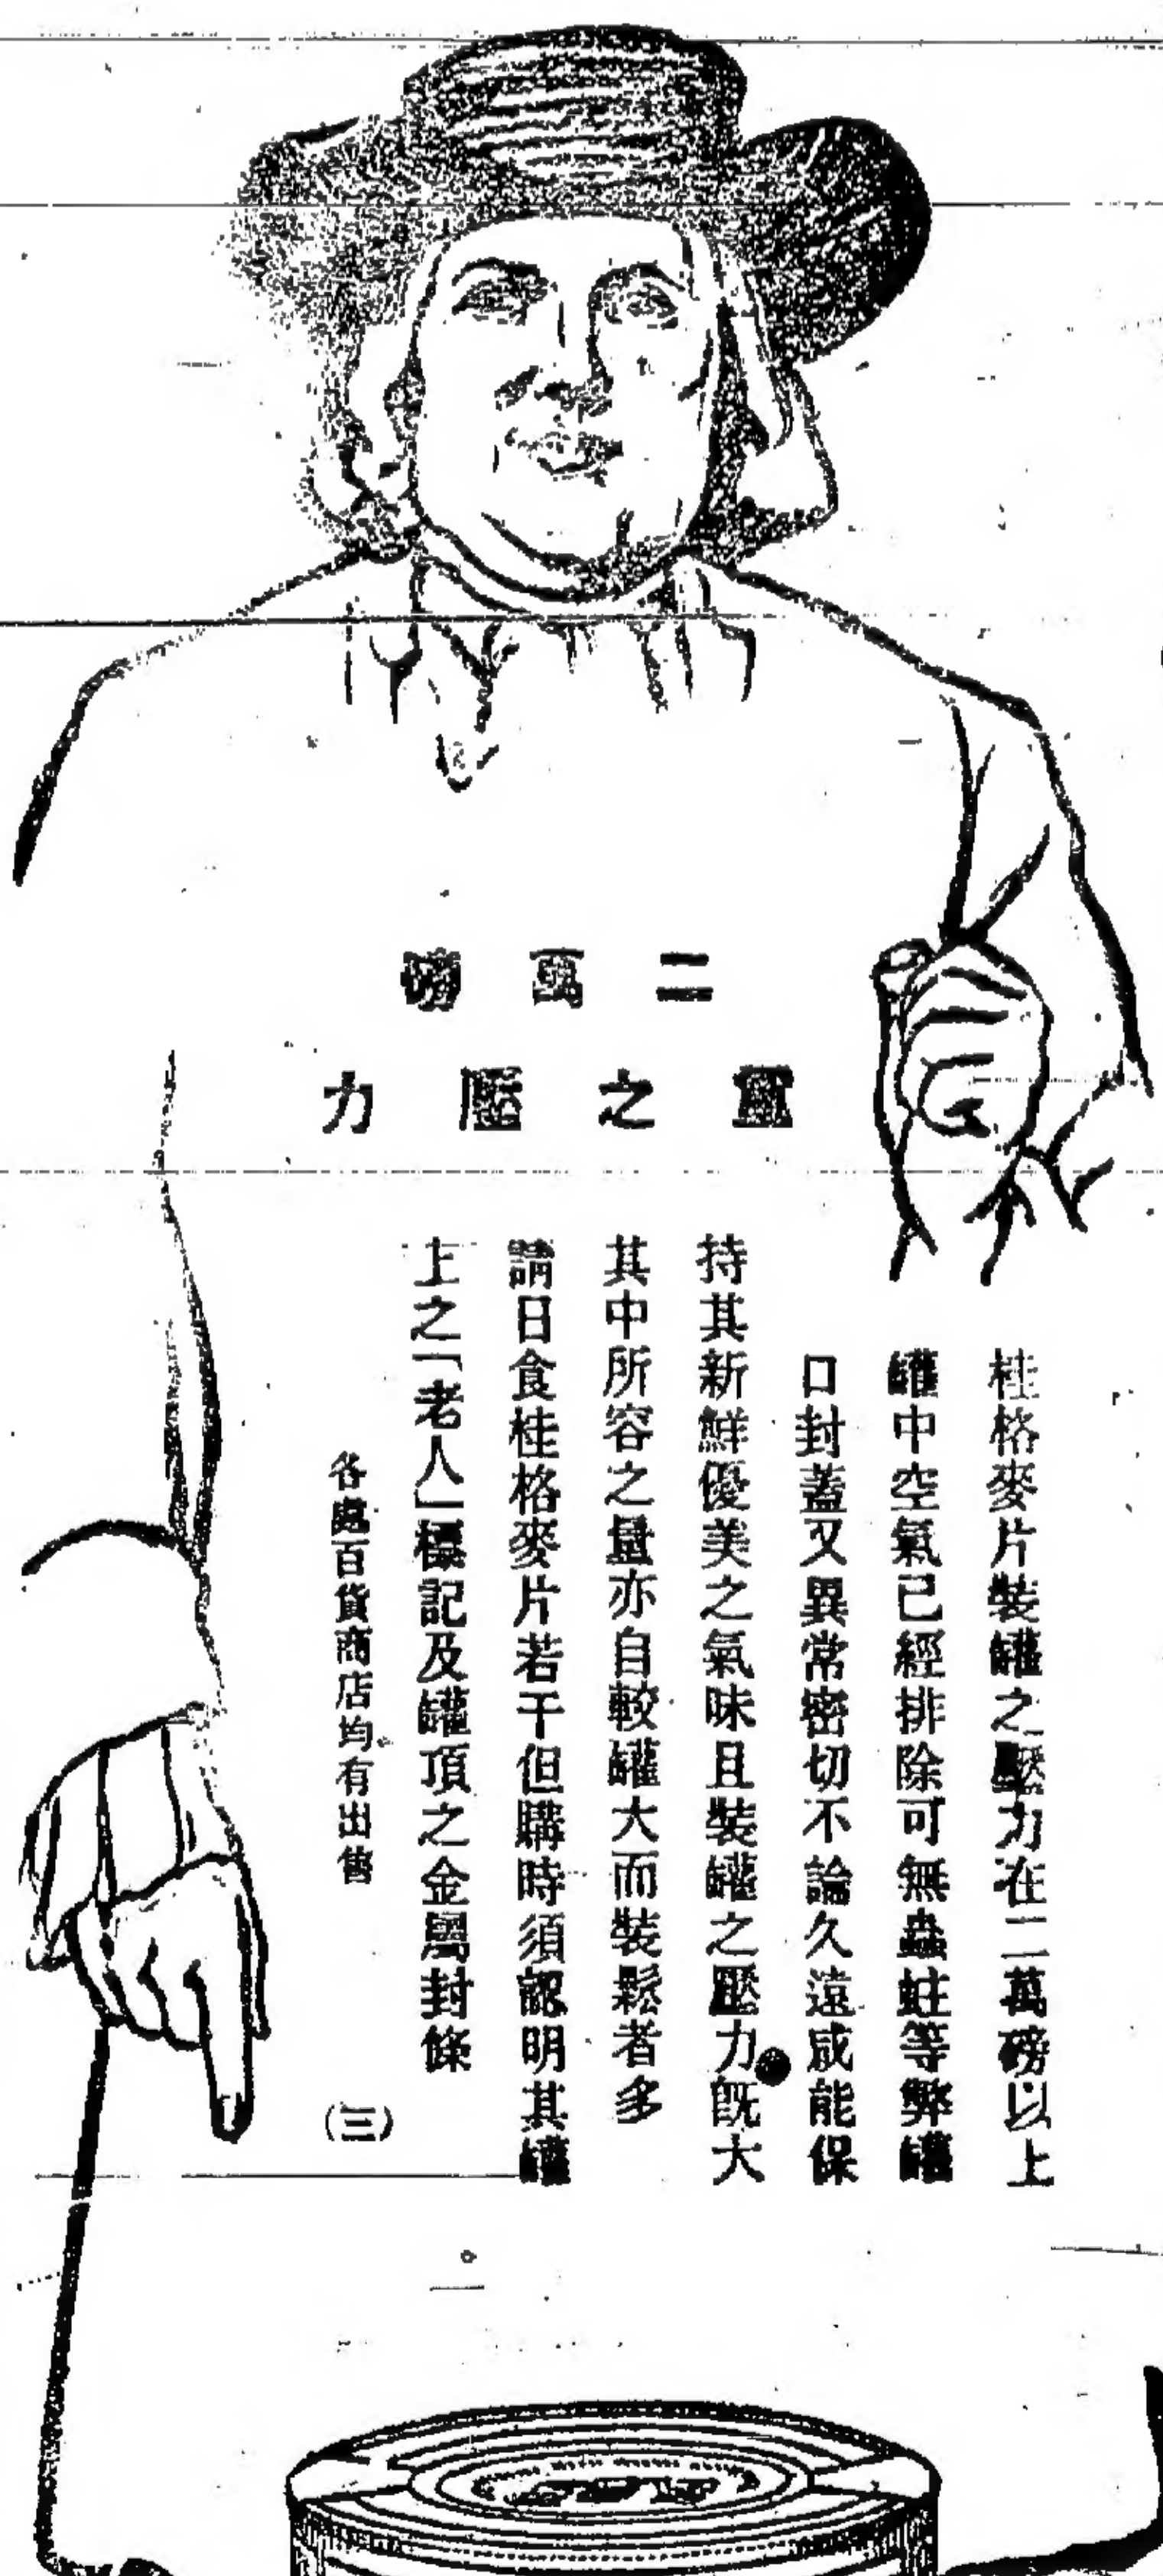 二萬磅
重之壓力
桂格麥片裝罐之壓力在二萬磅以上
罐中空氣已經排除可無蟲蛀等弊罐
口封蓋又異常密切不論久遠咸能保
持其新鮮優美之氣味且裝罐之壓力既大
其中所容之量亦自較罐大而裝鬆者多
請日食桂格麥片若干但購時須認明其罐
上之「老人」標記及罐頂之金屬封條
各處百貨商店均有出售
(三)